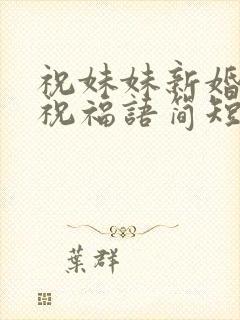 祝妹妹新婚
祝福語简短
葉群